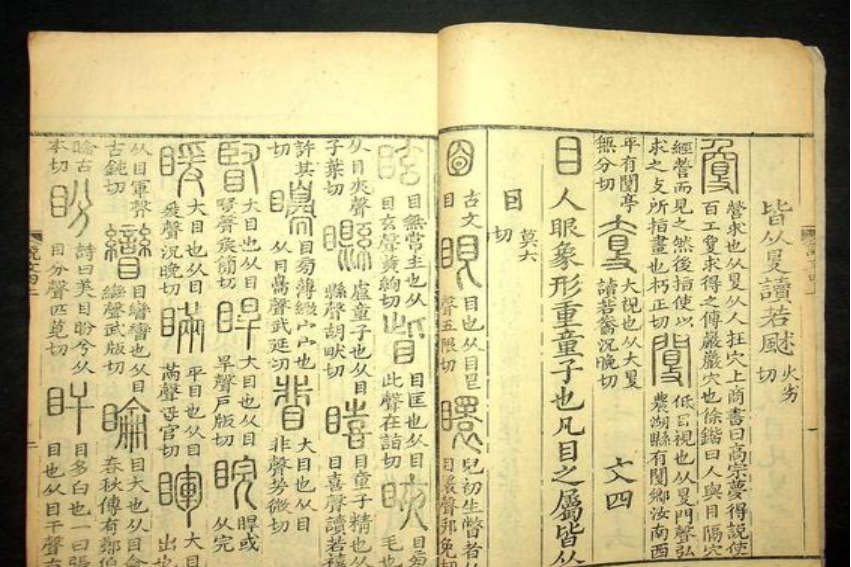 皆从𥄎讀若䫻 火劣切
夐 營求也从𥄎从人在穴上商書曰高宗夢得說使
百工夐求得之傅巖巖穴也徐鍇曰人與目隔穴
經營而見之然後指使以
求之攴所指畫也朽正切
閺 低目視也从𥄎門聲弘
農湖縣有閺鄉汝南西
平有閺亭
無分切
𡙇 大視也从大𥄎
讀若𧻓況晚切
文四
目 人眼象形重童子也凡目之屬皆从
目 莫六切
𡇡 古文
目
眼 目也从目㫐
聲五限切
䁵 兒初生瞥者从
目瞏聲邦免切
眩 目無常主也从
目玄聲黃絢切
眥 目匡也从目
此聲在詣切
䀹 目旁
毛也
从目夾聲
子葉切
矑 盧童子也从目
縣聲胡畎切
瞦 目童子精也从
目喜聲讀若禧
許其
切
矏 目旁薄緻宀宀也
从目𦤝聲武延切
䀏 大目也从目
非聲芳微切
䁂 大目也从目
臤聲矦簡切
睅 大目也从目
旱聲戶版切
睆 睅或
从完
暖 大目也从目
爰聲況晚切
瞞 平目也从目
㒼聲母官切
睴 大目
出也
从目軍聲
古鈍切
矕 目矕矕也从目
䜌聲武版切
睔 目大也从目侖
春秋傳有鄭伯
睔古
本切
盼 詩曰美目盼兮从
目分聲匹莧切
盰 目多白也一曰張
目也从目干聲古